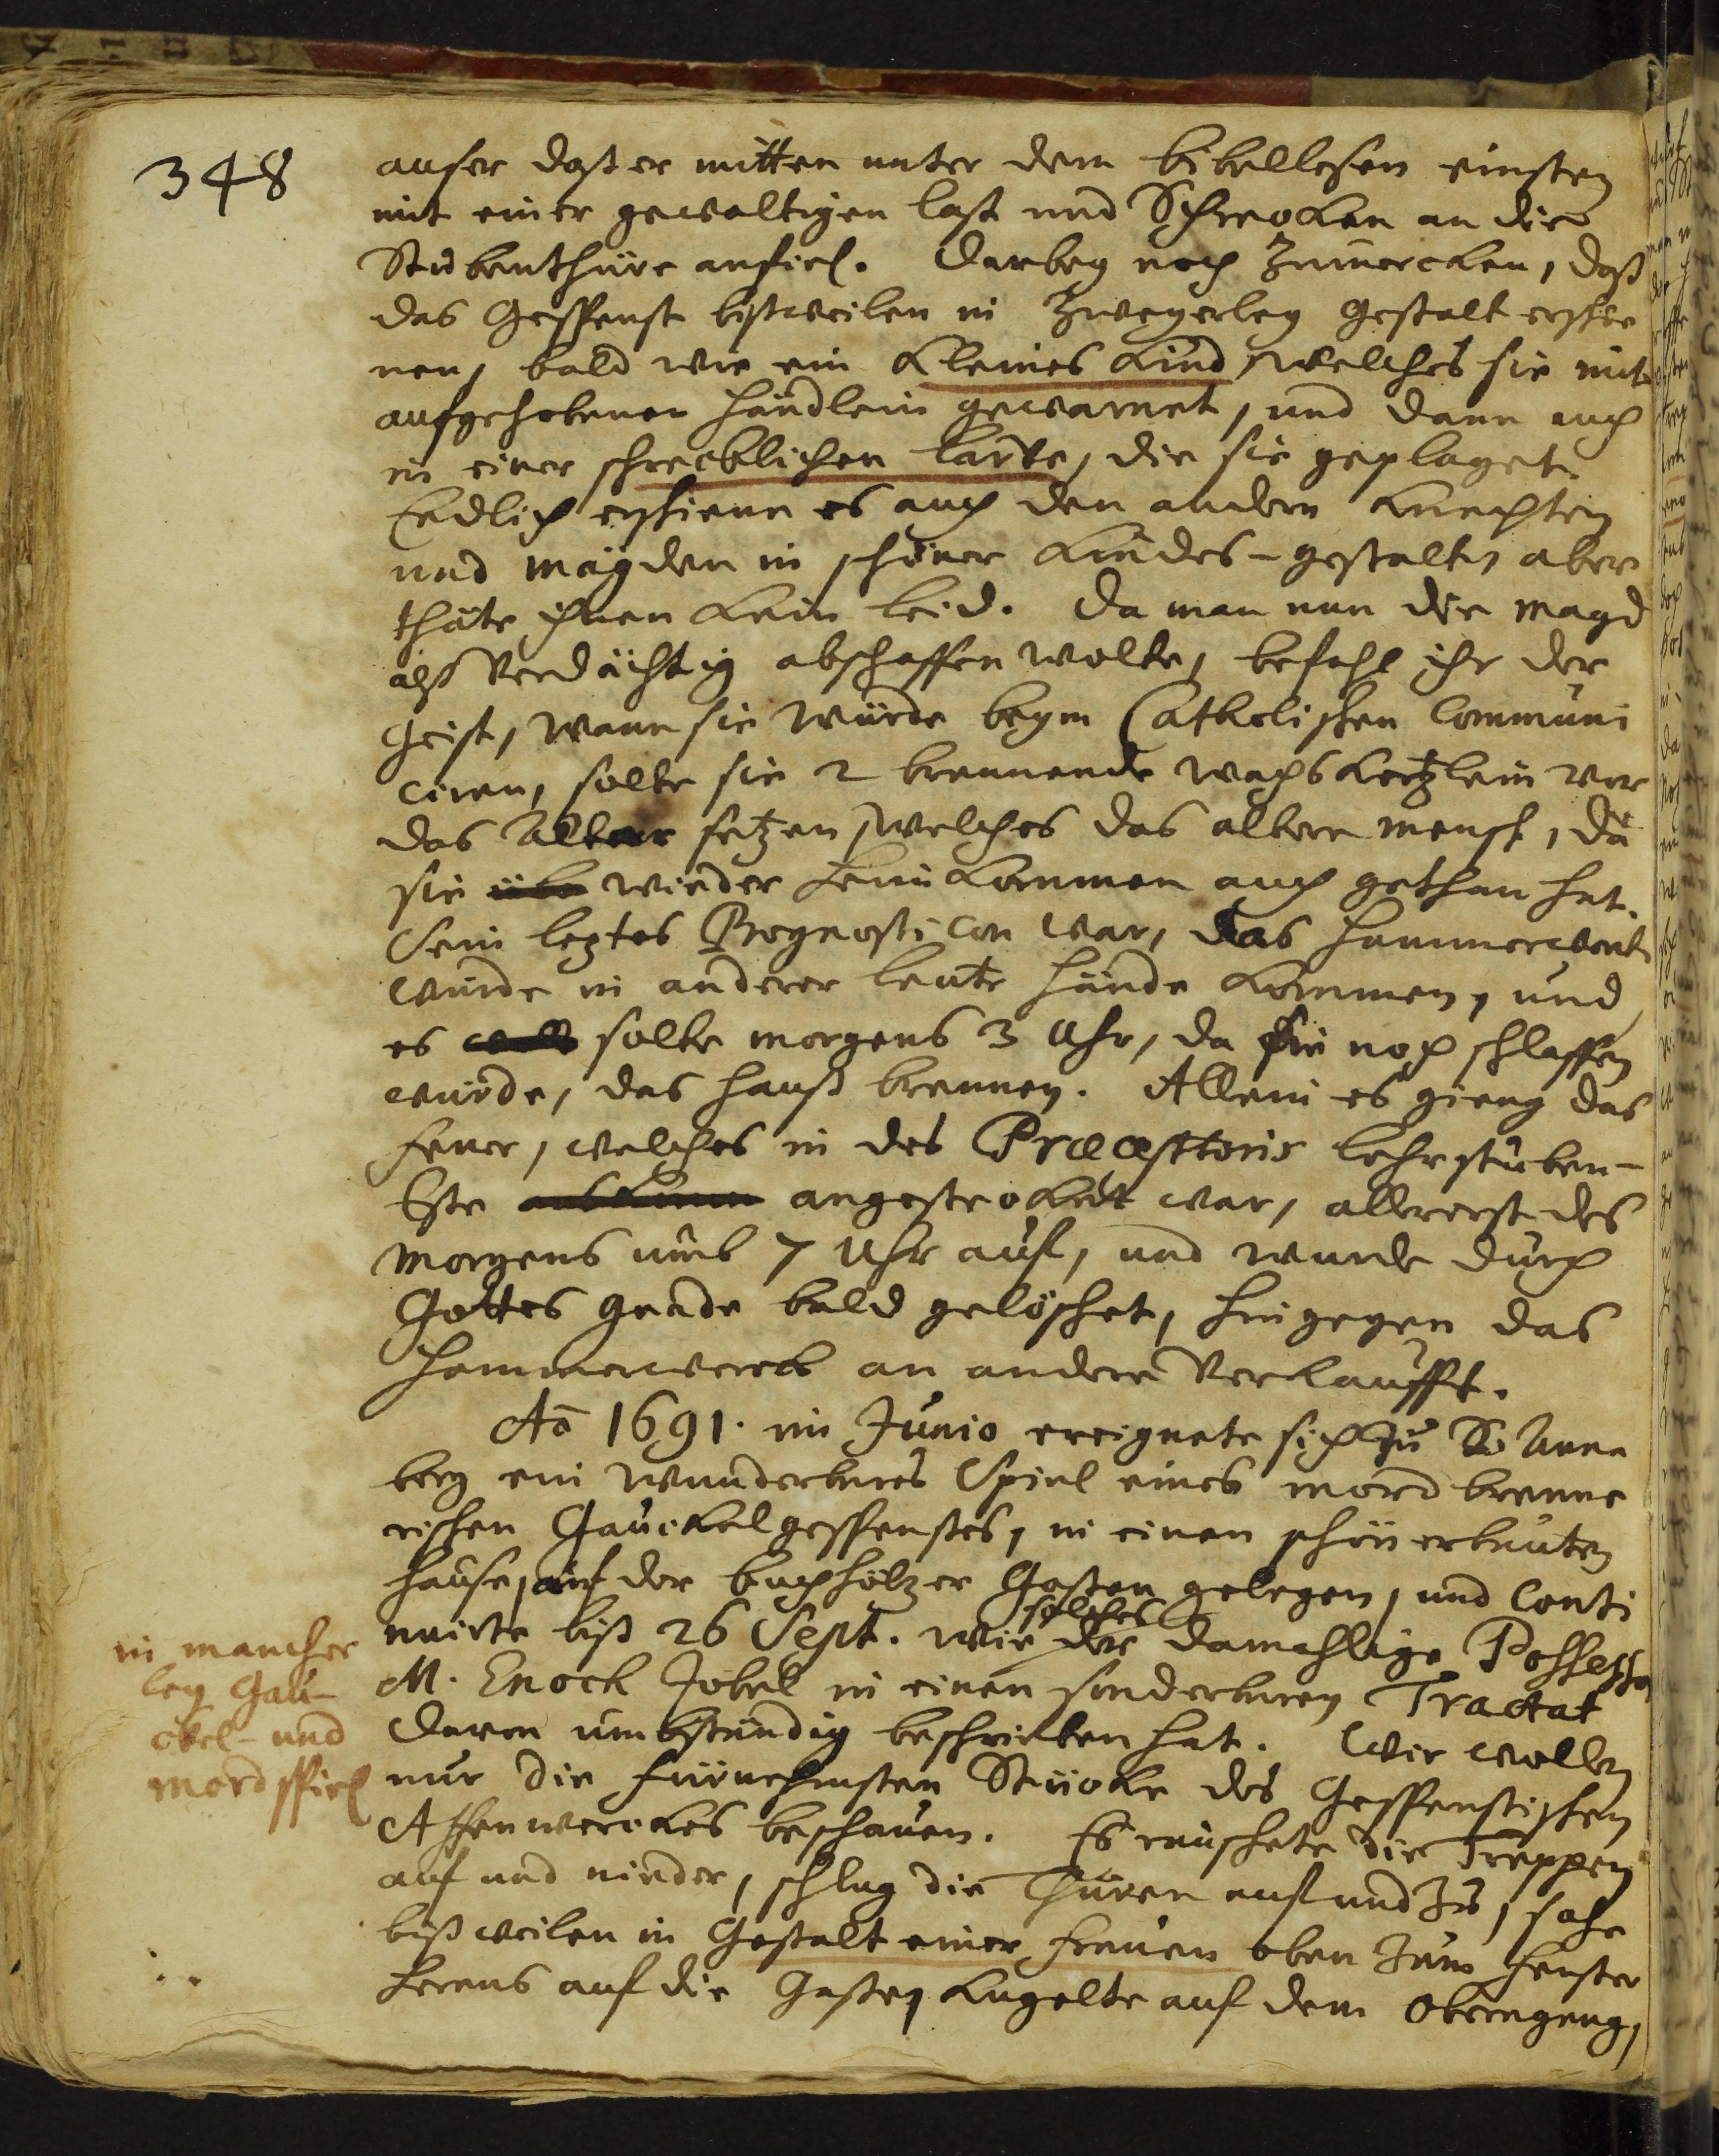 348
auser daß er mitten unter dem bibellesen einsten
mit einer gewaltigen last und Schrecken an die
Stubenthüre anfiel. Darbey noch Zumercken, daß
das Gespenst bißweilen in Zweyerley gestalt erschie
nen, bald wie ein kleines kind, welches sie mit
aufgehobenen händlein gewarnet, und dann auch
in einer schrecklichen larve, die sie geplaget.
Endlich erschiene es auch den andern knechten
und mägden in schöner kindes-gestalt, aber
thäte ihnen kein leid. Da man nun die magd
alß verdächtig abschaffen wolte, befahl ihr der
Geist, wann sie würde beym Catholischen Communi
ciren, solte sie 2 brennende wachskertzlein vor
das Altar setzen, welches das albere mensch, da
sie wieder heimkommen auch gethan hat.
Sein leztes Prognosticon war, das hammerwerk
würde in anderer leute hände kommen, und
es solte morgens 3 Uhr, da sie noch schlaffen
würde, das hauß brennen. Allein es gieng das
feuer, welches in des Præceptoris lehrstuben-
Este angestecket war, allererst des
morgens umb 7 Uhr auf, und wurde durch
Gottes gnade bald gelöschet, hingegen das
hammerwerck an andere verkaufft.
Aō 1691. im Junio ereignete sich zu St Anna
berg ein wunderbares Spiel eines mordbrenne
rischen Gauckelgespenstes, in einen schön erbauten
hause, auf der buchholzer Gassen gelegen, und Conti
nuirte biß 26 Sept. wie solches der damahlige Possessor
M. Enoch Zobel in einen sonderbaren Tractat
davon umbständig beschrieben hat. Wir wollen
nur die fürnehmsten Stücke des Gespenstischen
Affenwerckes beschauen. Es rauschete die Treppen
auf und nieder, schlug die Thüren auf und zu, sahe
bißweilen in Gestalt einer frauen oben zum fenster
heraus auf die Gassen, kugelte auf dem Obergang,
in mancher
ley Gau-
ckel- und
mordspiel